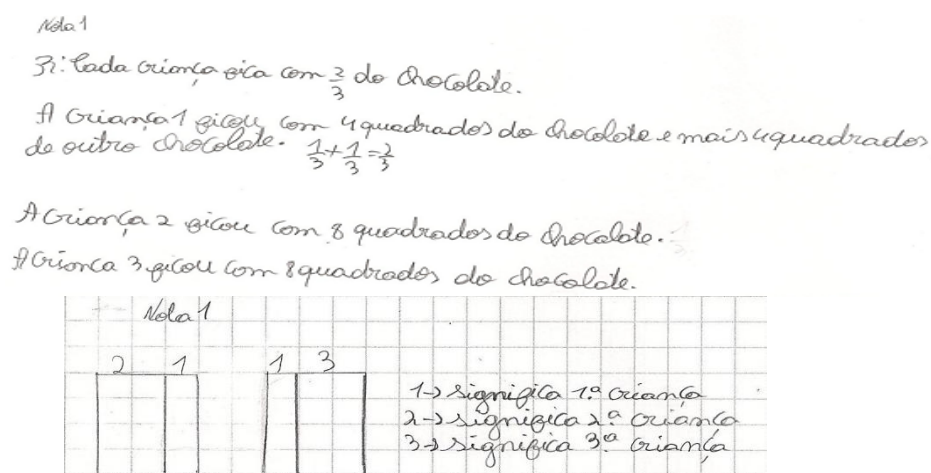 Nota 1
R: Cada criança fica com 2/3 do chocolate.
A criança 1 ficou com 4 quadrados do chocolate e mais 4 quadrados
de outro chocolate. 1/3 + 1/3 = 2/3
A criança 2 ficou com 8 quadrados do chocolate.
A criança 3 ficou com 8 quadrados do chocolate.
Nota 1
2 1 1 3
1→ significa 1.ª criança
2→ significa 2.ª criança
3→ significa 3.ª criança